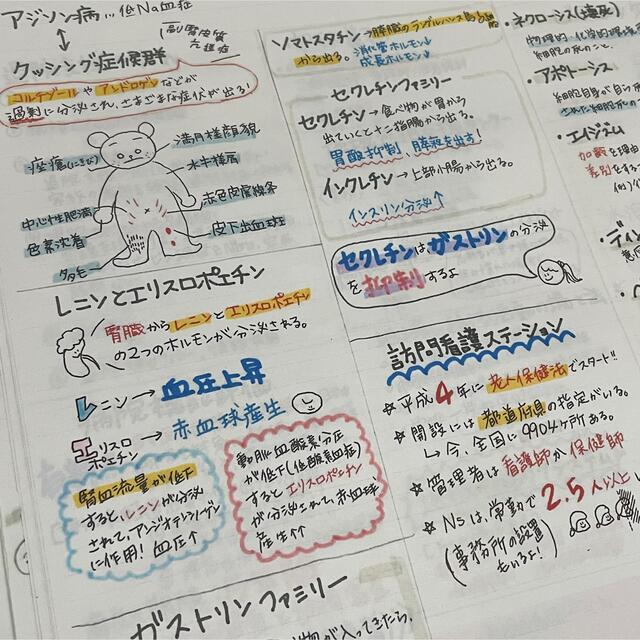 アジソン病…低Na血症
クッシング症候群
コルチゾールやアンドロゲンなどが
過剰に分泌され、さまざまな症状が出る!
痤瘡(にきび)
満月様顔貌
水牛様肩
中心性肥満
赤色皮膚線条
色素沈着
皮下出血斑
多毛
レニンとエリスロポエチン
腎臓からレニンとエリスロポエチン
の2つのホルモンが分泌される。
レニン→血圧上昇
エリスロポエチン→赤血球産生
腎血流量が低下
すると、レニンが分泌
されて、アンジオテンシノーゲン
に作用!血圧↑
動脈血酸素分圧
が低下(低酸素血症)
するとエリスロポエチン
が分泌されて、赤血球
産生↑
ガストリンファミリー
ソマトスタチン→膵臓のランゲルハンス島δ細胞
から出る。
消化管ホルモン↓
成長ホルモン↓
セクレチンファミリー
セクレチン→食べ物が胃から
出ていくと十二指腸から出る。
胃酸抑制、膵液を出す!
インクレチン→上部小腸から出る。
インスリン分泌↑
セクレチンはガストリンの分泌
を抑制するよ
訪問看護ステーション
☆平成4年に老人保健法でスタート!!
☆開設には都道府県の指定がいる。
↳今、全国に9904ヶ所ある。
☆管理者は看護師か保健師
☆Nsは、常勤で2.5人以上
(事務所の設置
もいるよ!)
・ネクローシス(壊死)
物理的、化学的
細胞の死のこと。
・アポトーシス
細胞自身が
された細胞死
・エイジズム
加齢を理由
差別をする